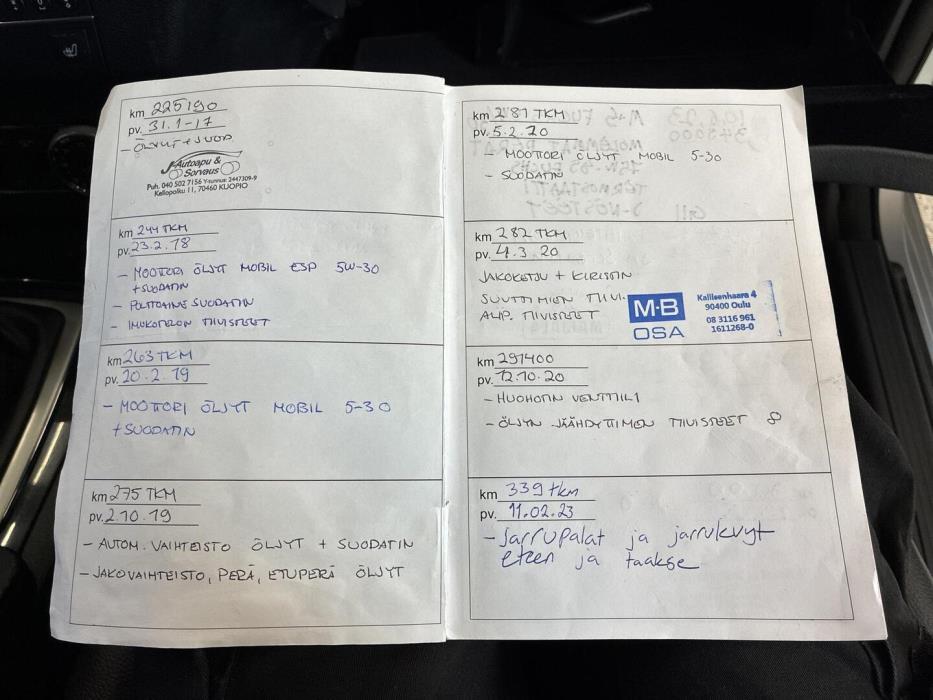 km 225190
pv. 31.1-17
- ÖLJYT + SUOD
Autoapu &
Sorvaus
Puh. 040 502 7156 Y-tunnus: 2447309-9
Kellopolku 11, 70460 KUOPIO
km 244 TKM
pv. 23.2.18
- MOOTTORI ÖLJYT MOBIL ESP 5W-30
+SUODATIN
- POLTTOAINE SUODATIN
- IMUKOTELON TIIVISTEET
km 263 TKM
pv. 20.2.19
- MOOTTORI ÖLJYT MOBIL 5-30
+SUODATIN
km 275 TKM
pv. 2.10.19
- AUTOM. VAIHTEISTO ÖLJYT + SUODATIN
- JAKOVAIHTEISTO, PERÄ, ETUPERÄ ÖLJYT
km 281 TKM
pv. 5.2.20
- MOOTTORI ÖLJYT MOBIL 5-30
- SUODATIN
km 282 TKM
pv. 4.3.20
JAKOKETJU + KIRISTIN
SUUTTIMIEN TIIVI.
ALIP. TIIVISTEET
M·B
OSA
Kallisenhaara 4
90400 Oulu
08 3116 961
1611268-0
km 291400
pv. 12.10.20
- HUOHOTIN VENTTIILI
- ÖLJYN JÄÄHDYTTIMEN TIIVISTEET
km 339 tkm
pv. 11.02.23
- Jarrupalat ja jarrukvyt
eteen ja taakse